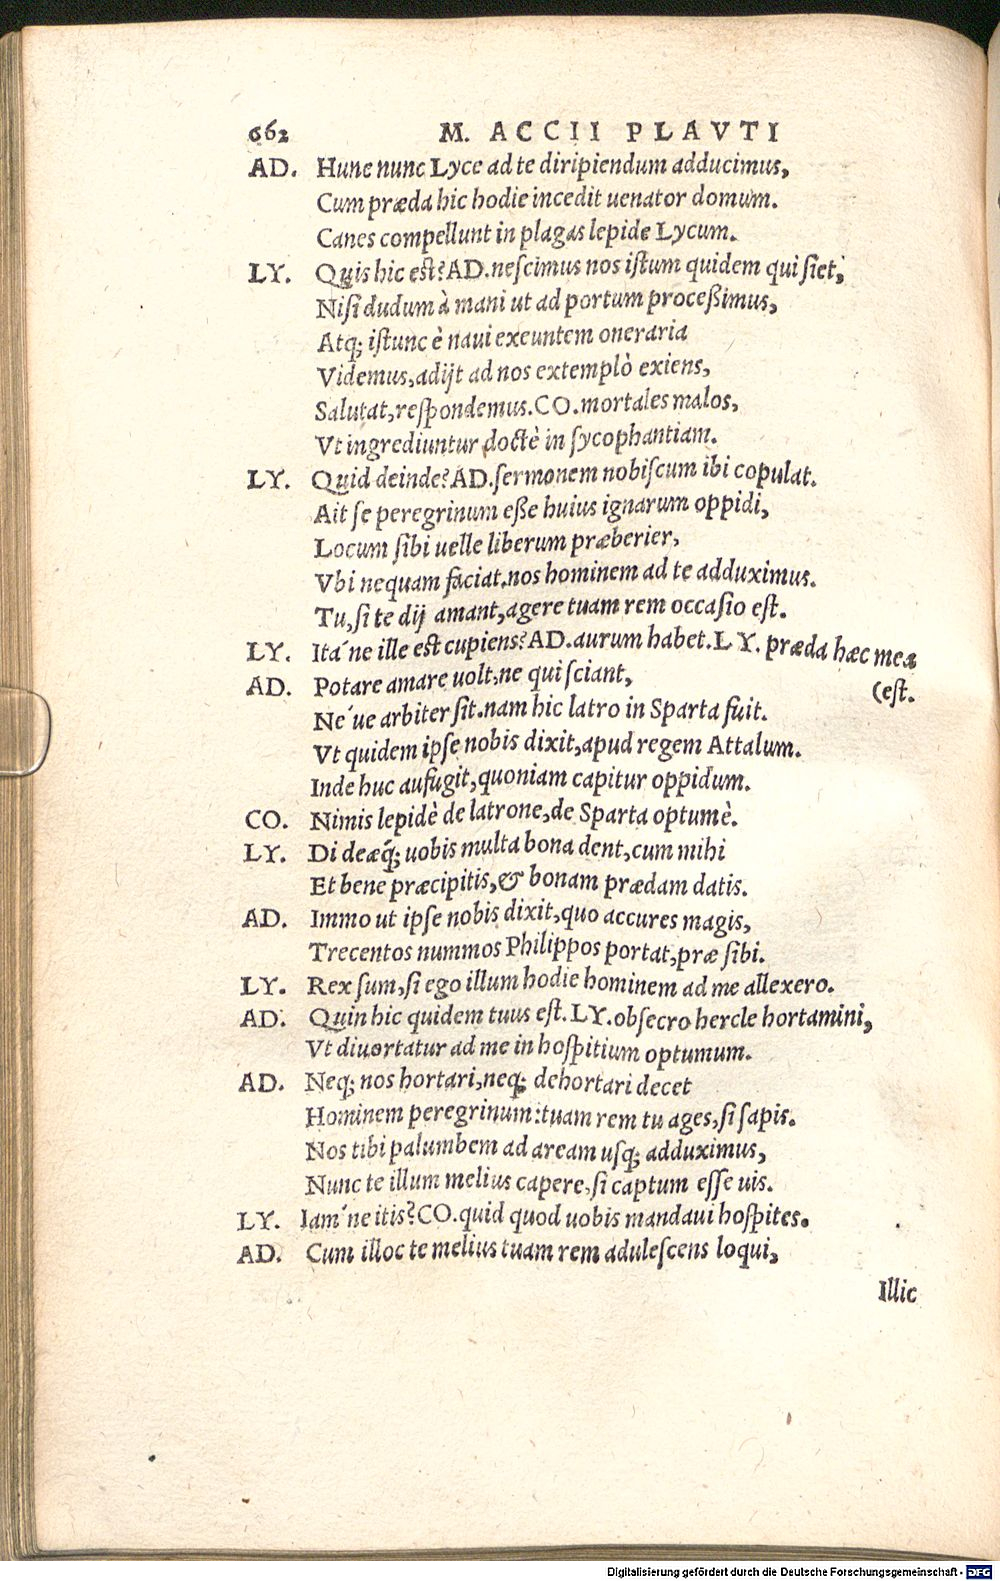 662 M. ACCII PLAVTI
AD. Hunc nunc Lyce ad te diripiendum adducimus,
Cum præda hic hodie incedit uenator domum.
Canes compellunt in plagas lepide Lycum.
LY. Quis hic est? AD. nescimus nos istum quidem qui siet,
Nisi dudum à mani ut ad portum proceßimus,
Atq; istunc è naui exeuntem oneraria
Videmus, adijt ad nos extemplò exiens,
Salutat, respondemus. CO. mortales malos,
Vt ingrediuntur doctè in sycophantiam.
LY. Quid deinde? AD. sermonem nobiscum ibi copulat.
Ait se peregrinum eße huius ignarum oppidi,
Locum sibi uelle liberum præberier,
Vbi nequam faciat. nos hominem ad te adduximus.
Tu, si te dij amant, agere tuam rem occasio est.
LY. Ita´ne ille est cupiens? AD. aurum habet. LY. præda hæc mea
AD. Potare amare uolt. ne qui sciant, (est.
Ne´ue arbiter sit. nam hic latro in Sparta fuit.
Vt quidem ipse nobis dixit, apud regem Attalum.
Inde huc aufugit, quoniam capitur oppidum.
CO. Nimis lepidè de latrone, de Sparta optumè.
LY. Di deæq́; uobis multa bona dent, cum mihi
Et bene præcipitis, & bonam prædam datis.
AD. Immo ut ipse nobis dixit, quo accures magis,
Trecentos nummos Philippos portat, præ sibi.
LY. Rex sum, si ego illum hodie hominem ad me allexero.
AD. Quin hic quidem tuus est. LY. obsecro hercle hortamini,
Vt diuortatur ad me in hospitium optumum.
AD. Neq; nos hortari, neq; dehortari decet
Hominem peregrinum: tuam rem tu ages, si sapis.
Nos tibi palumbem ad aream usq; adduximus,
Nunc te illum melius capere, si captum esse uis.
LY. Iam´ne itis? CO. quid quod uobis mandaui hospites.
AD. Cum illoc te melius tuam rem adulescens loqui,
Illic
Digitalisierung gefördert durch die Deutsche Forschungsgemeinschaft - DFG